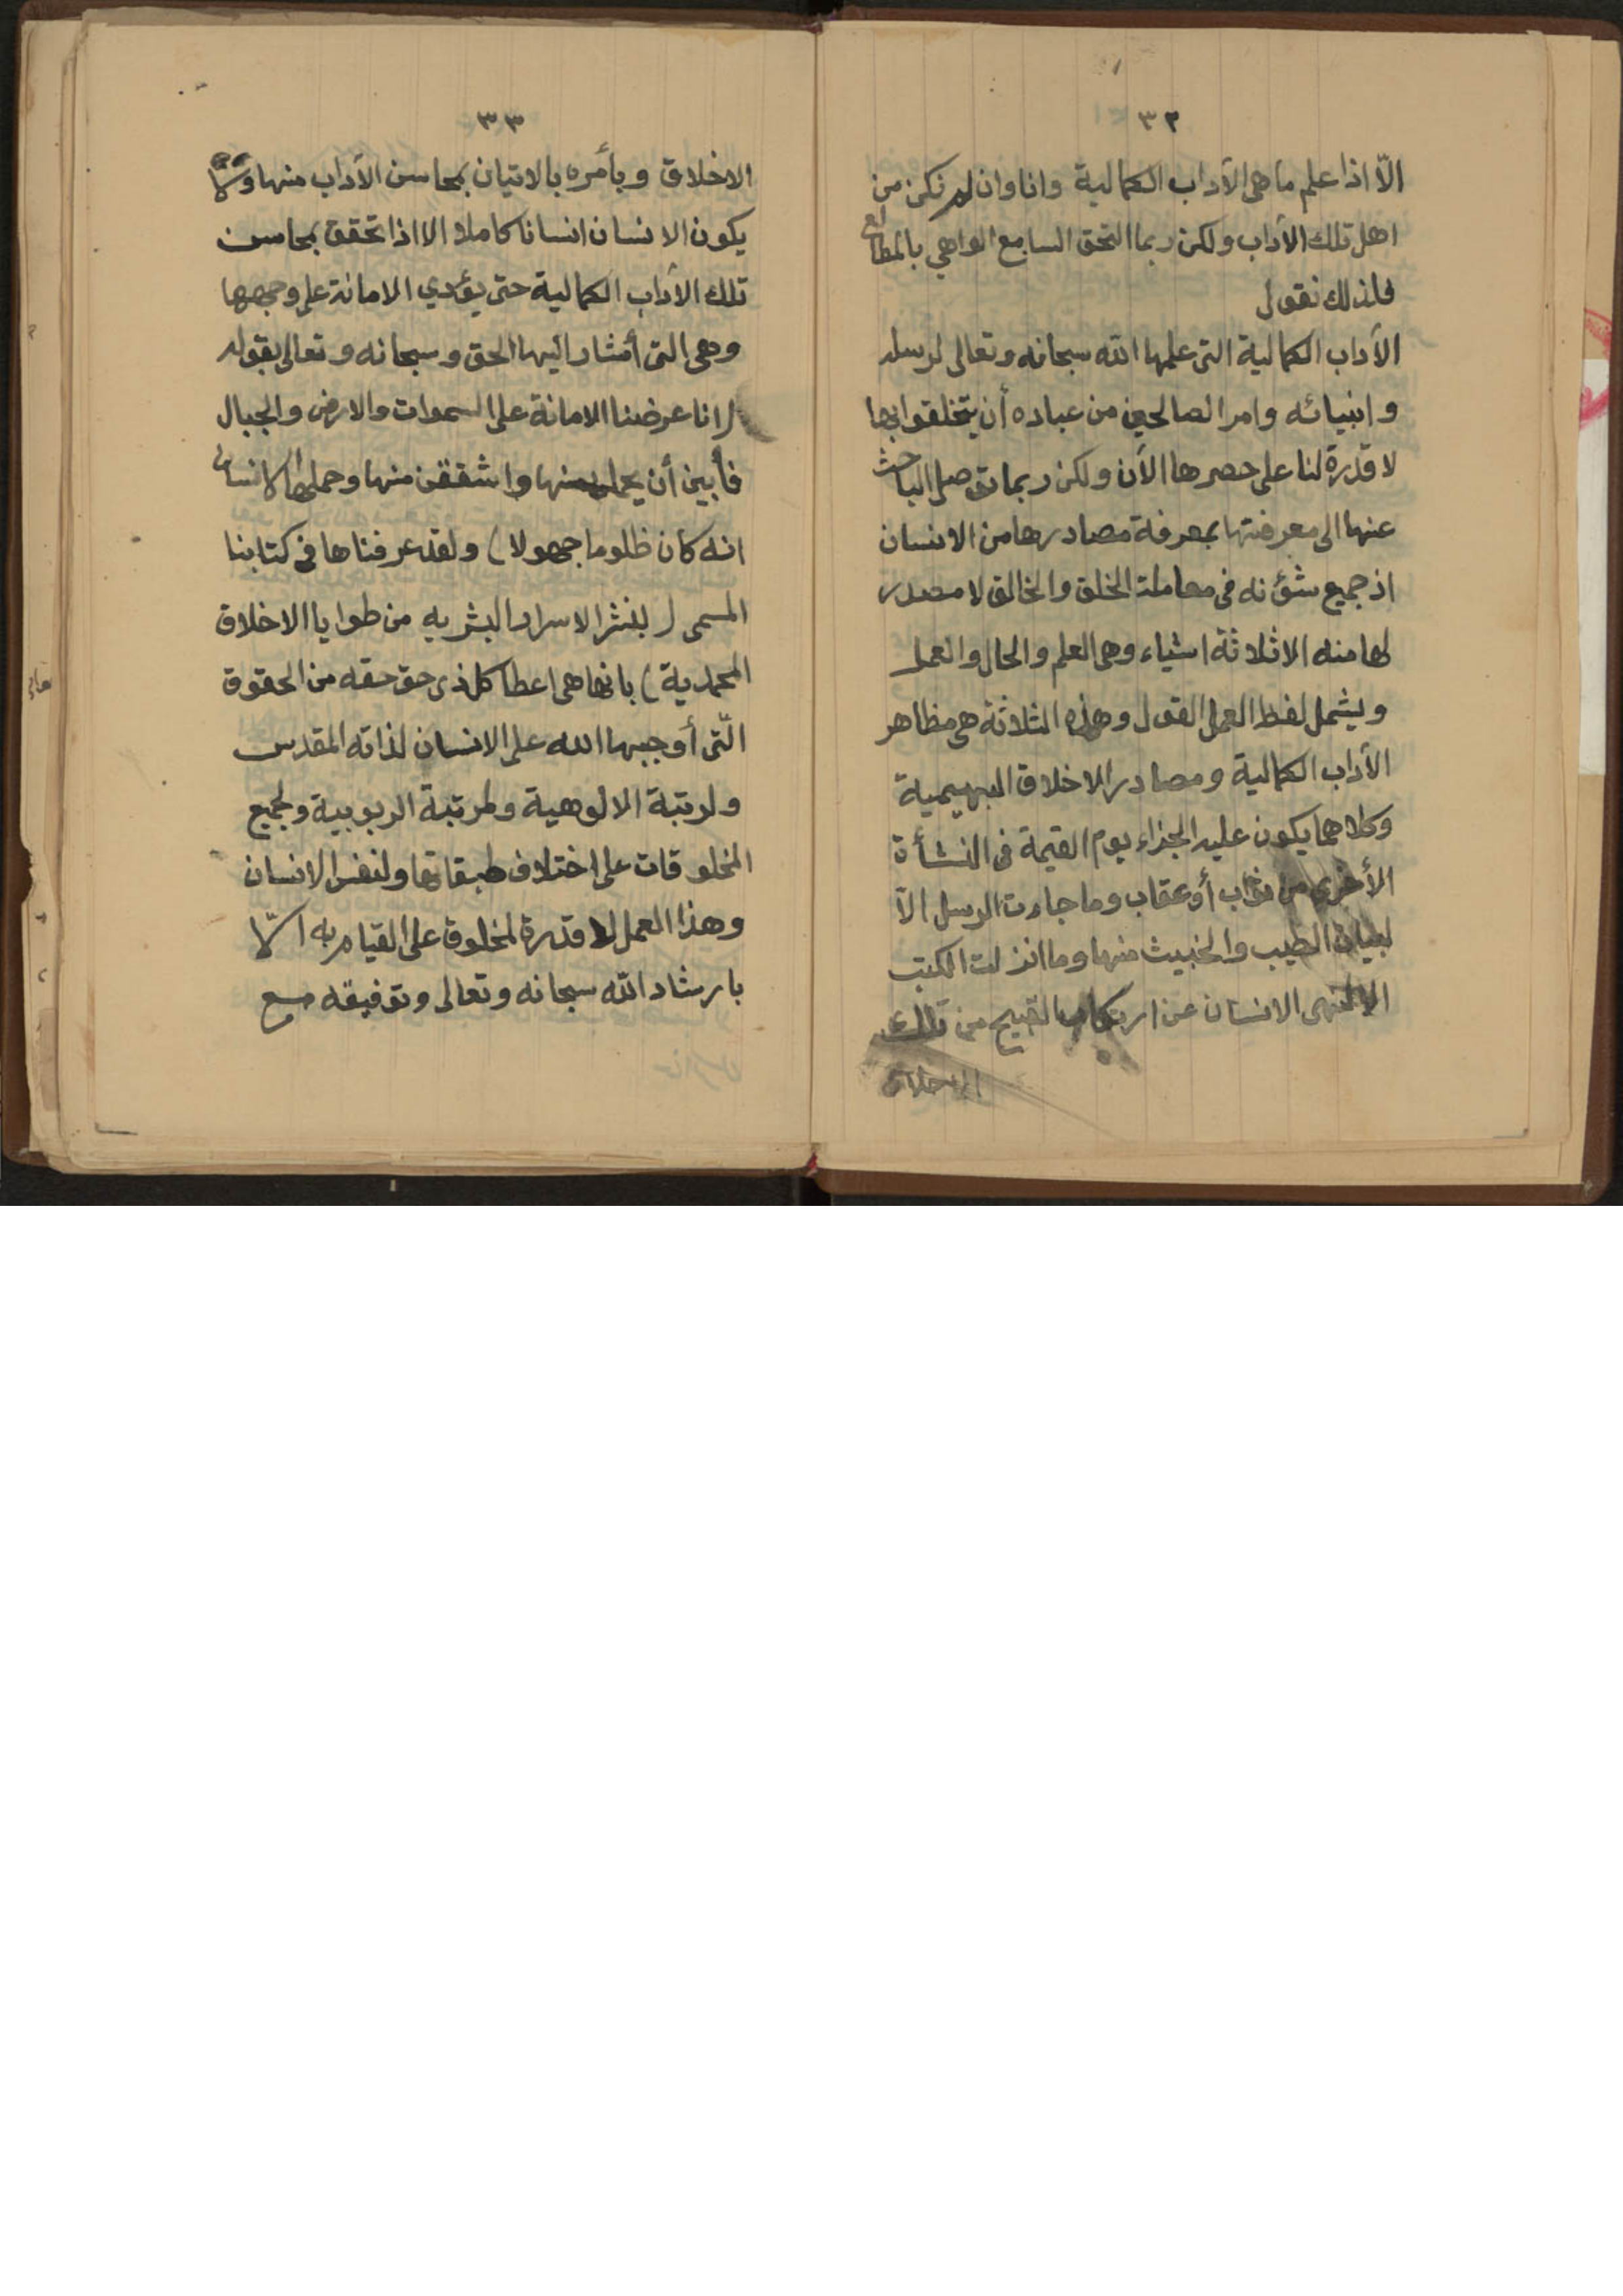 ٣٢
الّا اذا علم ما هى الآداب الكمالية وانا وان لم نكن من
اهل تلك الآداب ولكن ربما التحق السامع الواهي بالمطالع
فلذلك نقول
الآداب الكمالية التى علمها الله سبحانه وتعالى لرسله
وانبيائه وامر الصالحين من عباده أن يتخلقوا بها
لا قدرة لنا على حصرها الآن ولكن ربما توصل الباحث
عنها الى معرفتها بمعرفة مصادرها من الانسان
اذ جميع شؤنه فى معاملة الخلق والخالق لا مصدر
لها منه الا ثلاثة اشياء وهى العلم والحال والعمل
ويشمل لفظ العمل القول وهذه الثلاثة هى مظاهر
الآداب الكمالية ومصادر الاخلاق البهيمية
وكلاهما يكون عليه الجزاء يوم القيمة فى النشأة
الأخرى من ثواب أو عقاب وما جاءت الرسل الآ
لبيان الطيب والخبيث منها وما انزلت الكتب
الا لتنهى الانسان عن ارتكاب القبيح من تلك
الاخلاق
٣٣
الاخلاق ويأمره بالاتيان بمحاسن الآداب منها ولا
يكون الانسان انسانا كاملا الا اذا تحقق بمحاسن
تلك الآداب الكمالية حتى يؤدي الامانة على وجهها
وهى التى أشار اليها الحق و سبحانه وتعالى بقوله
( انا عرضنا الامانة على السموات والارض والجبال
فأبين أن يحملنها واشفقن منها وحملها الانسان
انه كان ظلوما جهولا ) ولقد عرفناها فى كتابنا
المسمى ( بنشر الاسرار البشريه من طوايا الاخلاق
المحمدية ) بانها هى اعطا كل ذى حق حقه من الحقوق
الّتى أوجبها الله على الانسان لذاته المقدس
ولرتبة الالوهية ولمرتبة الربوبية ولجميع
المخلوقات على اختلاف طبقاتها ولنفس الانسان
وهذا العمل لا قدرة لمخلوق على القيام به الّا
بارشاد الله سبحانه وتعالى وتوفيقه مع